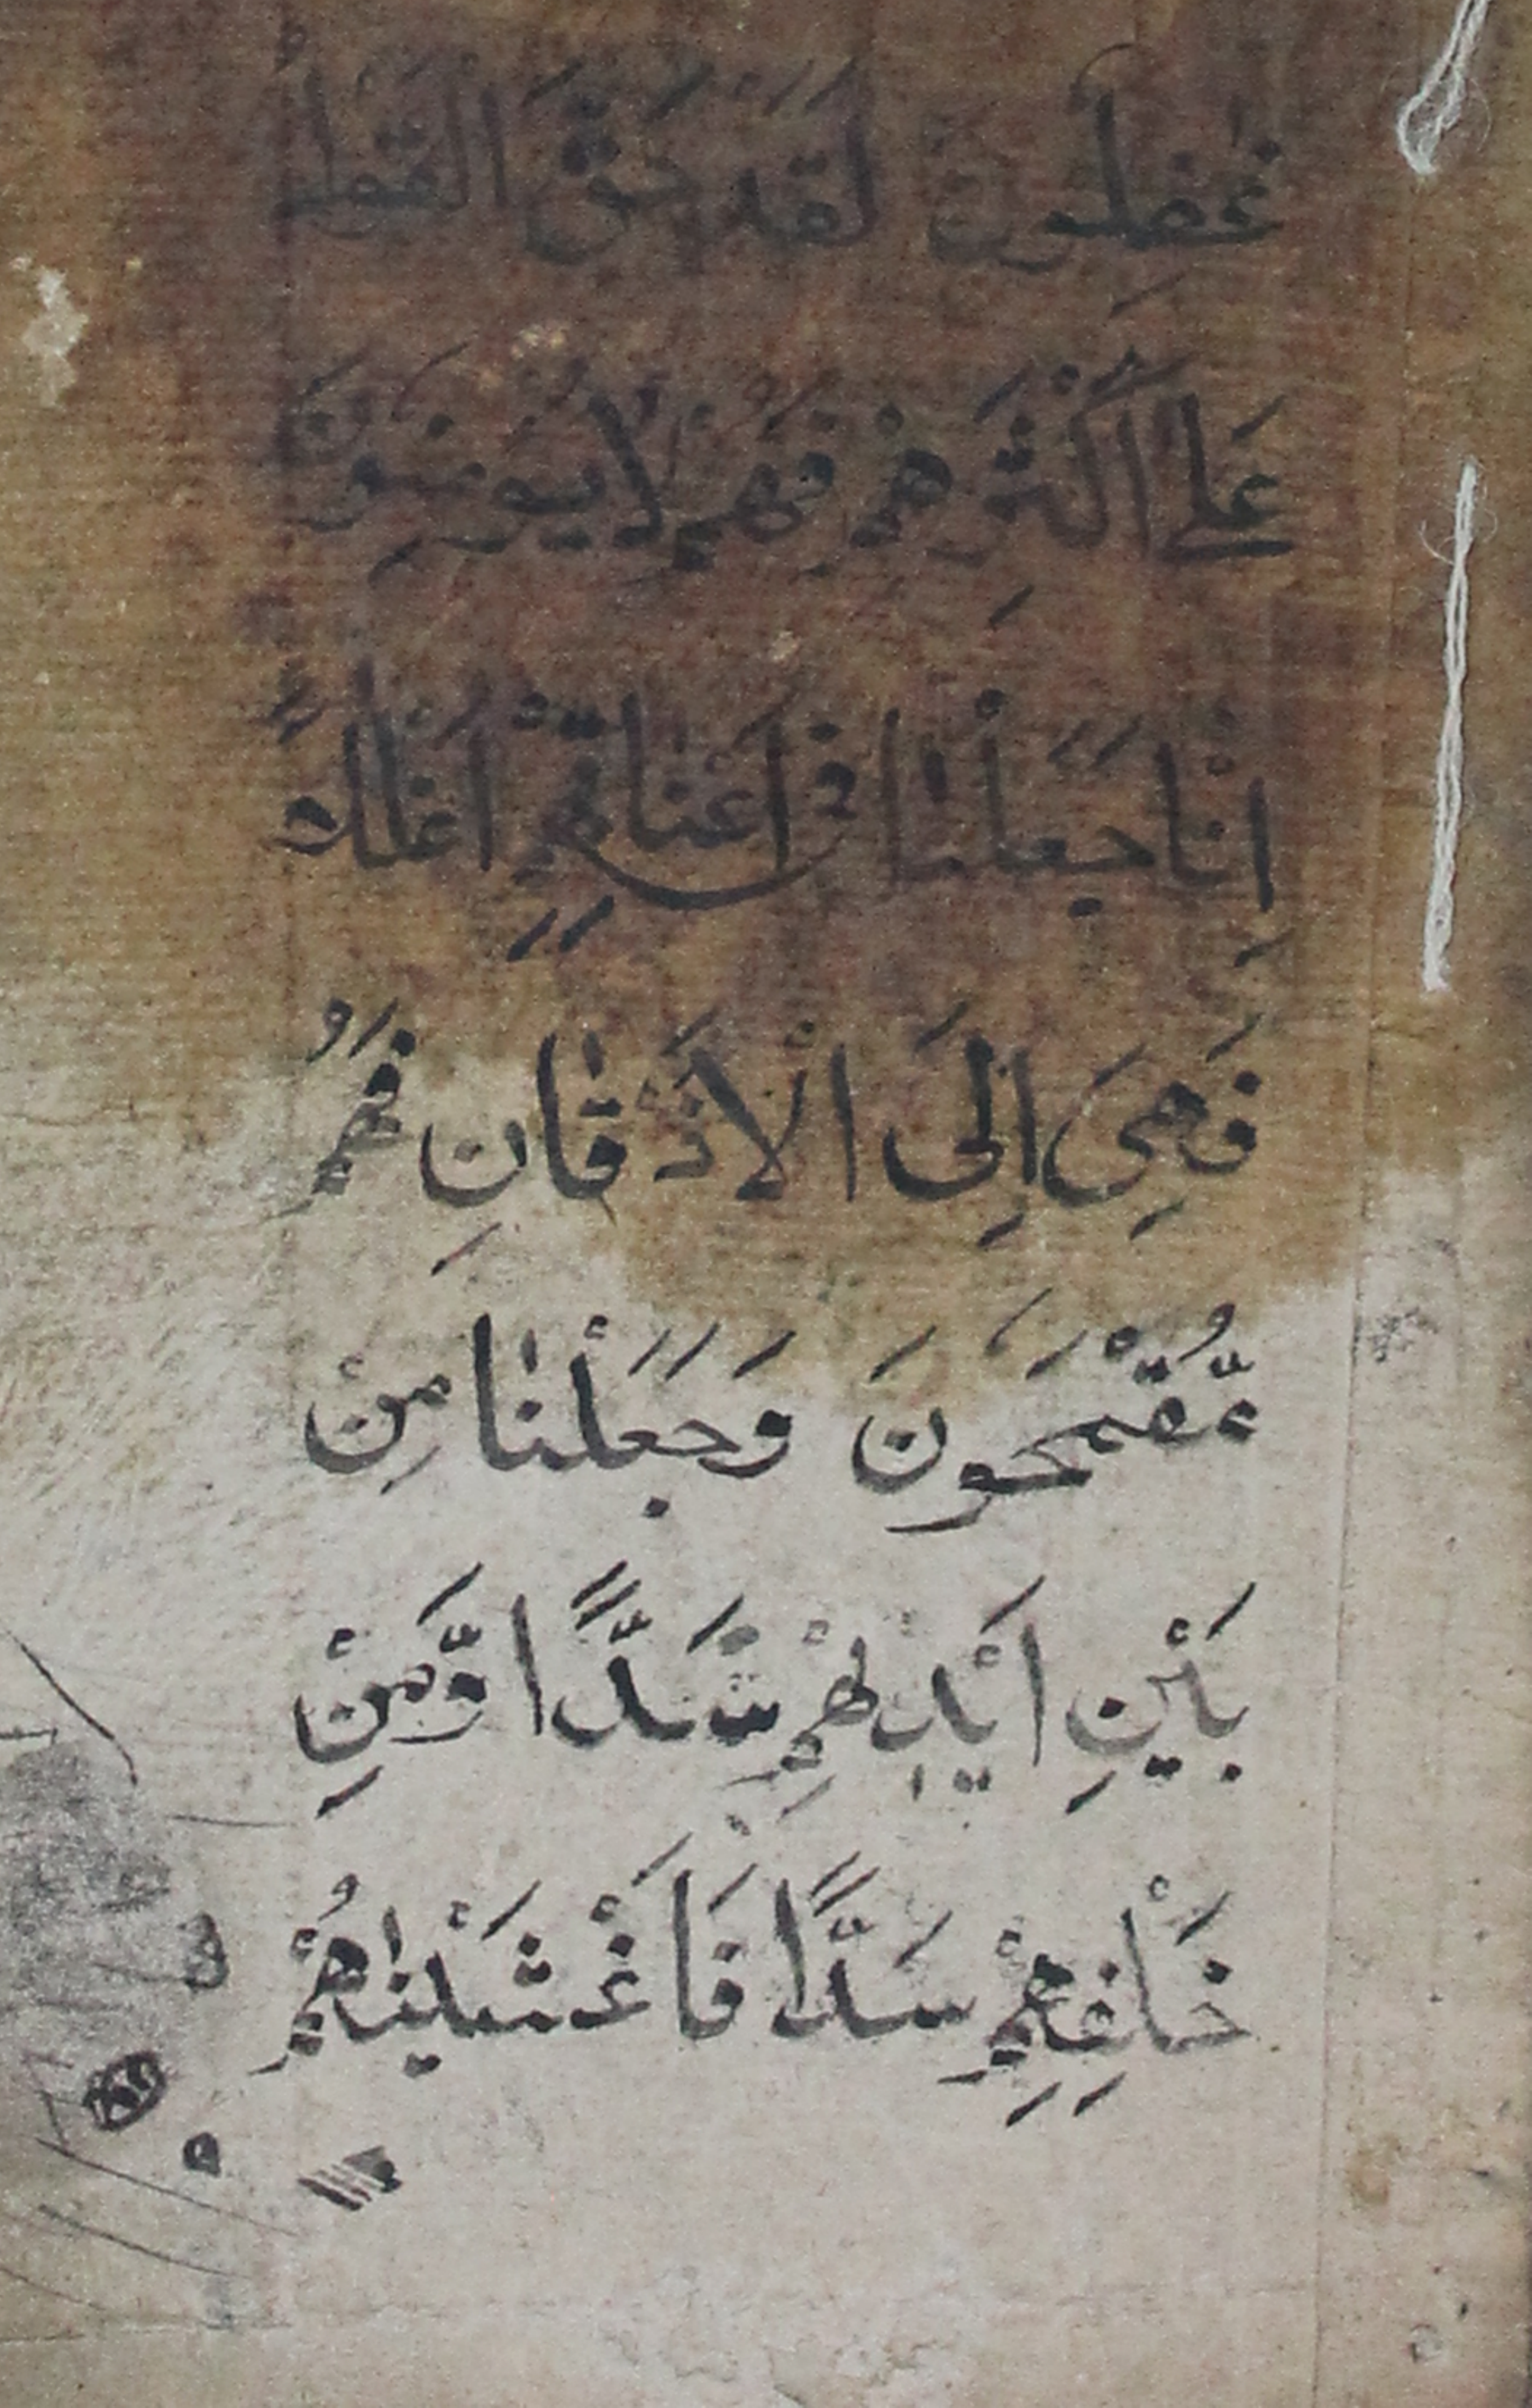 غٰفِلُونَ لَقَدْ حَقَّ الْقَوْلُ
عَلٰى اَكْثَرِهِمْ فَهُمْ لَا يُؤْمِنُونَ
اِنَّا جَعَلْنٰا فِى اَعْنَاقِهِمْ اَغْلٰلاً
فَهِىَ اِلَى الْاَذْقَانِ فَهُمْ
مُّقْمَحُونَ وَجَعَلْنٰا مِنْ
بَيْنِ اَيْدِيْهِمْ سَدًّا وَّمِنْ
خَلْفِهِمْ سَدًّا فَاَغْشَيْنٰهُمْ